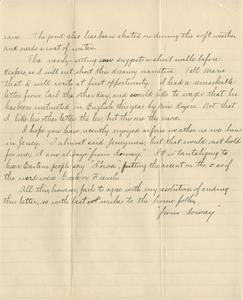 rain. The pond also has been skated on during the soft weather
and needs a coat of water.
The nearly setting sun suggests a short walk before
supper, so I will cut short this dreamy narrative. Tell Marie
that I will write at first opportunity. I had a remarkable
letter from Carl the other day, and would like to wager that he
has been instructed in English this year by Miss Rogers. Not that
I like his other letters the less, but this one the more.
I hope you have recently enjoyed as fine weather as we here
in Jersey. I almost said Jerseyman, but that would not hold
for me; I am always "from Ioway." It is tantalizing to
hear Eastern people say "Iowa", putting the accent on the o as if
the word were Greek or French.
All this, however, fails to agree with my resolution of ending
this letter, so with best wishes to the home folks,
"from Ioway"